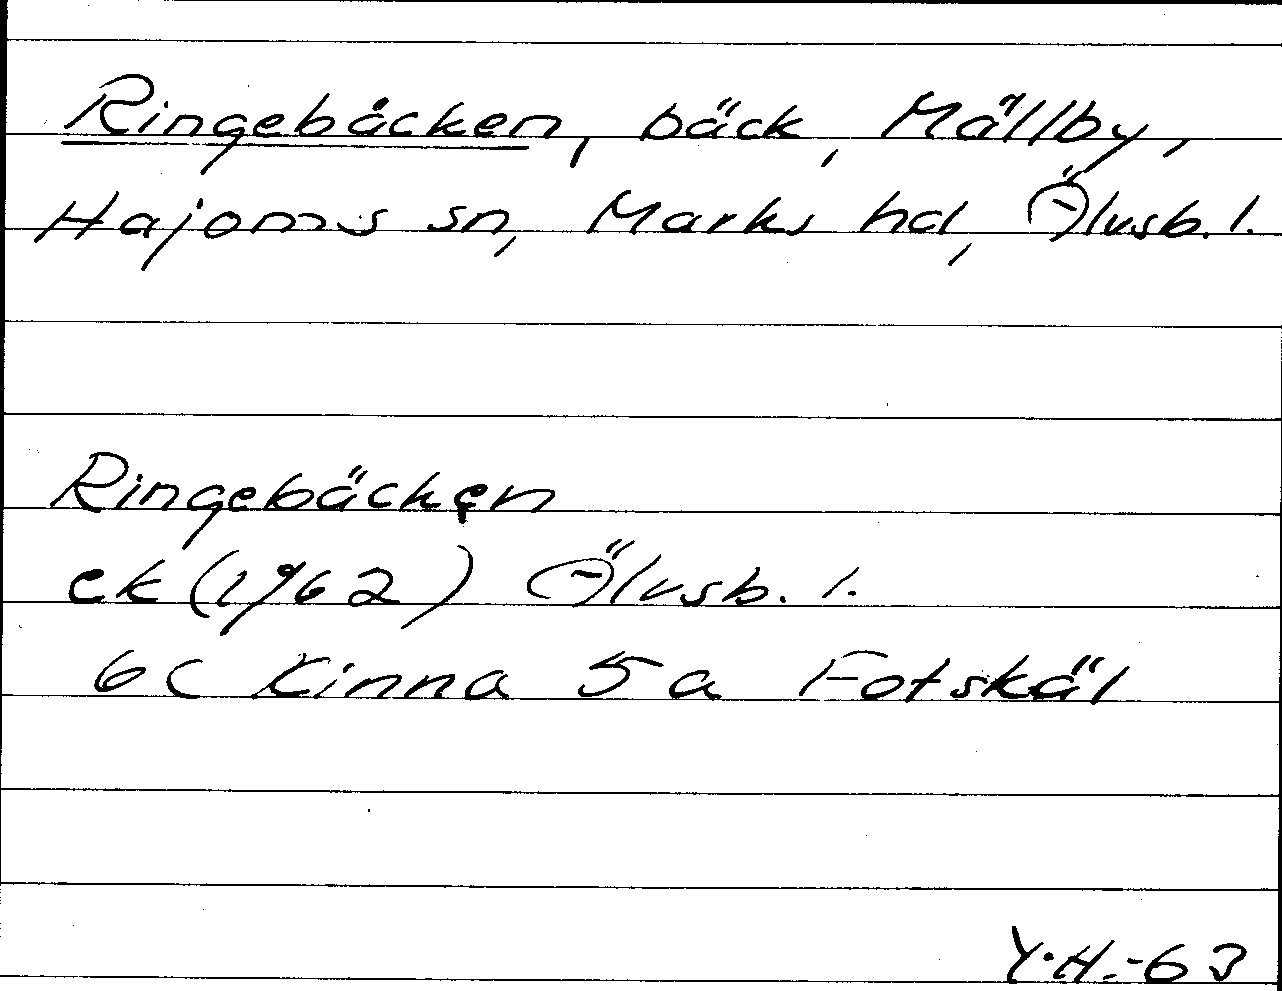 Ringebäcken, bäck, Mällby,
Hajoms sn, Marks hd, Älvsb. l.
Ringebäcken
ek (1962) Älvsb. l.
6C Kinna 5a Fotskäl
Y.H.-63